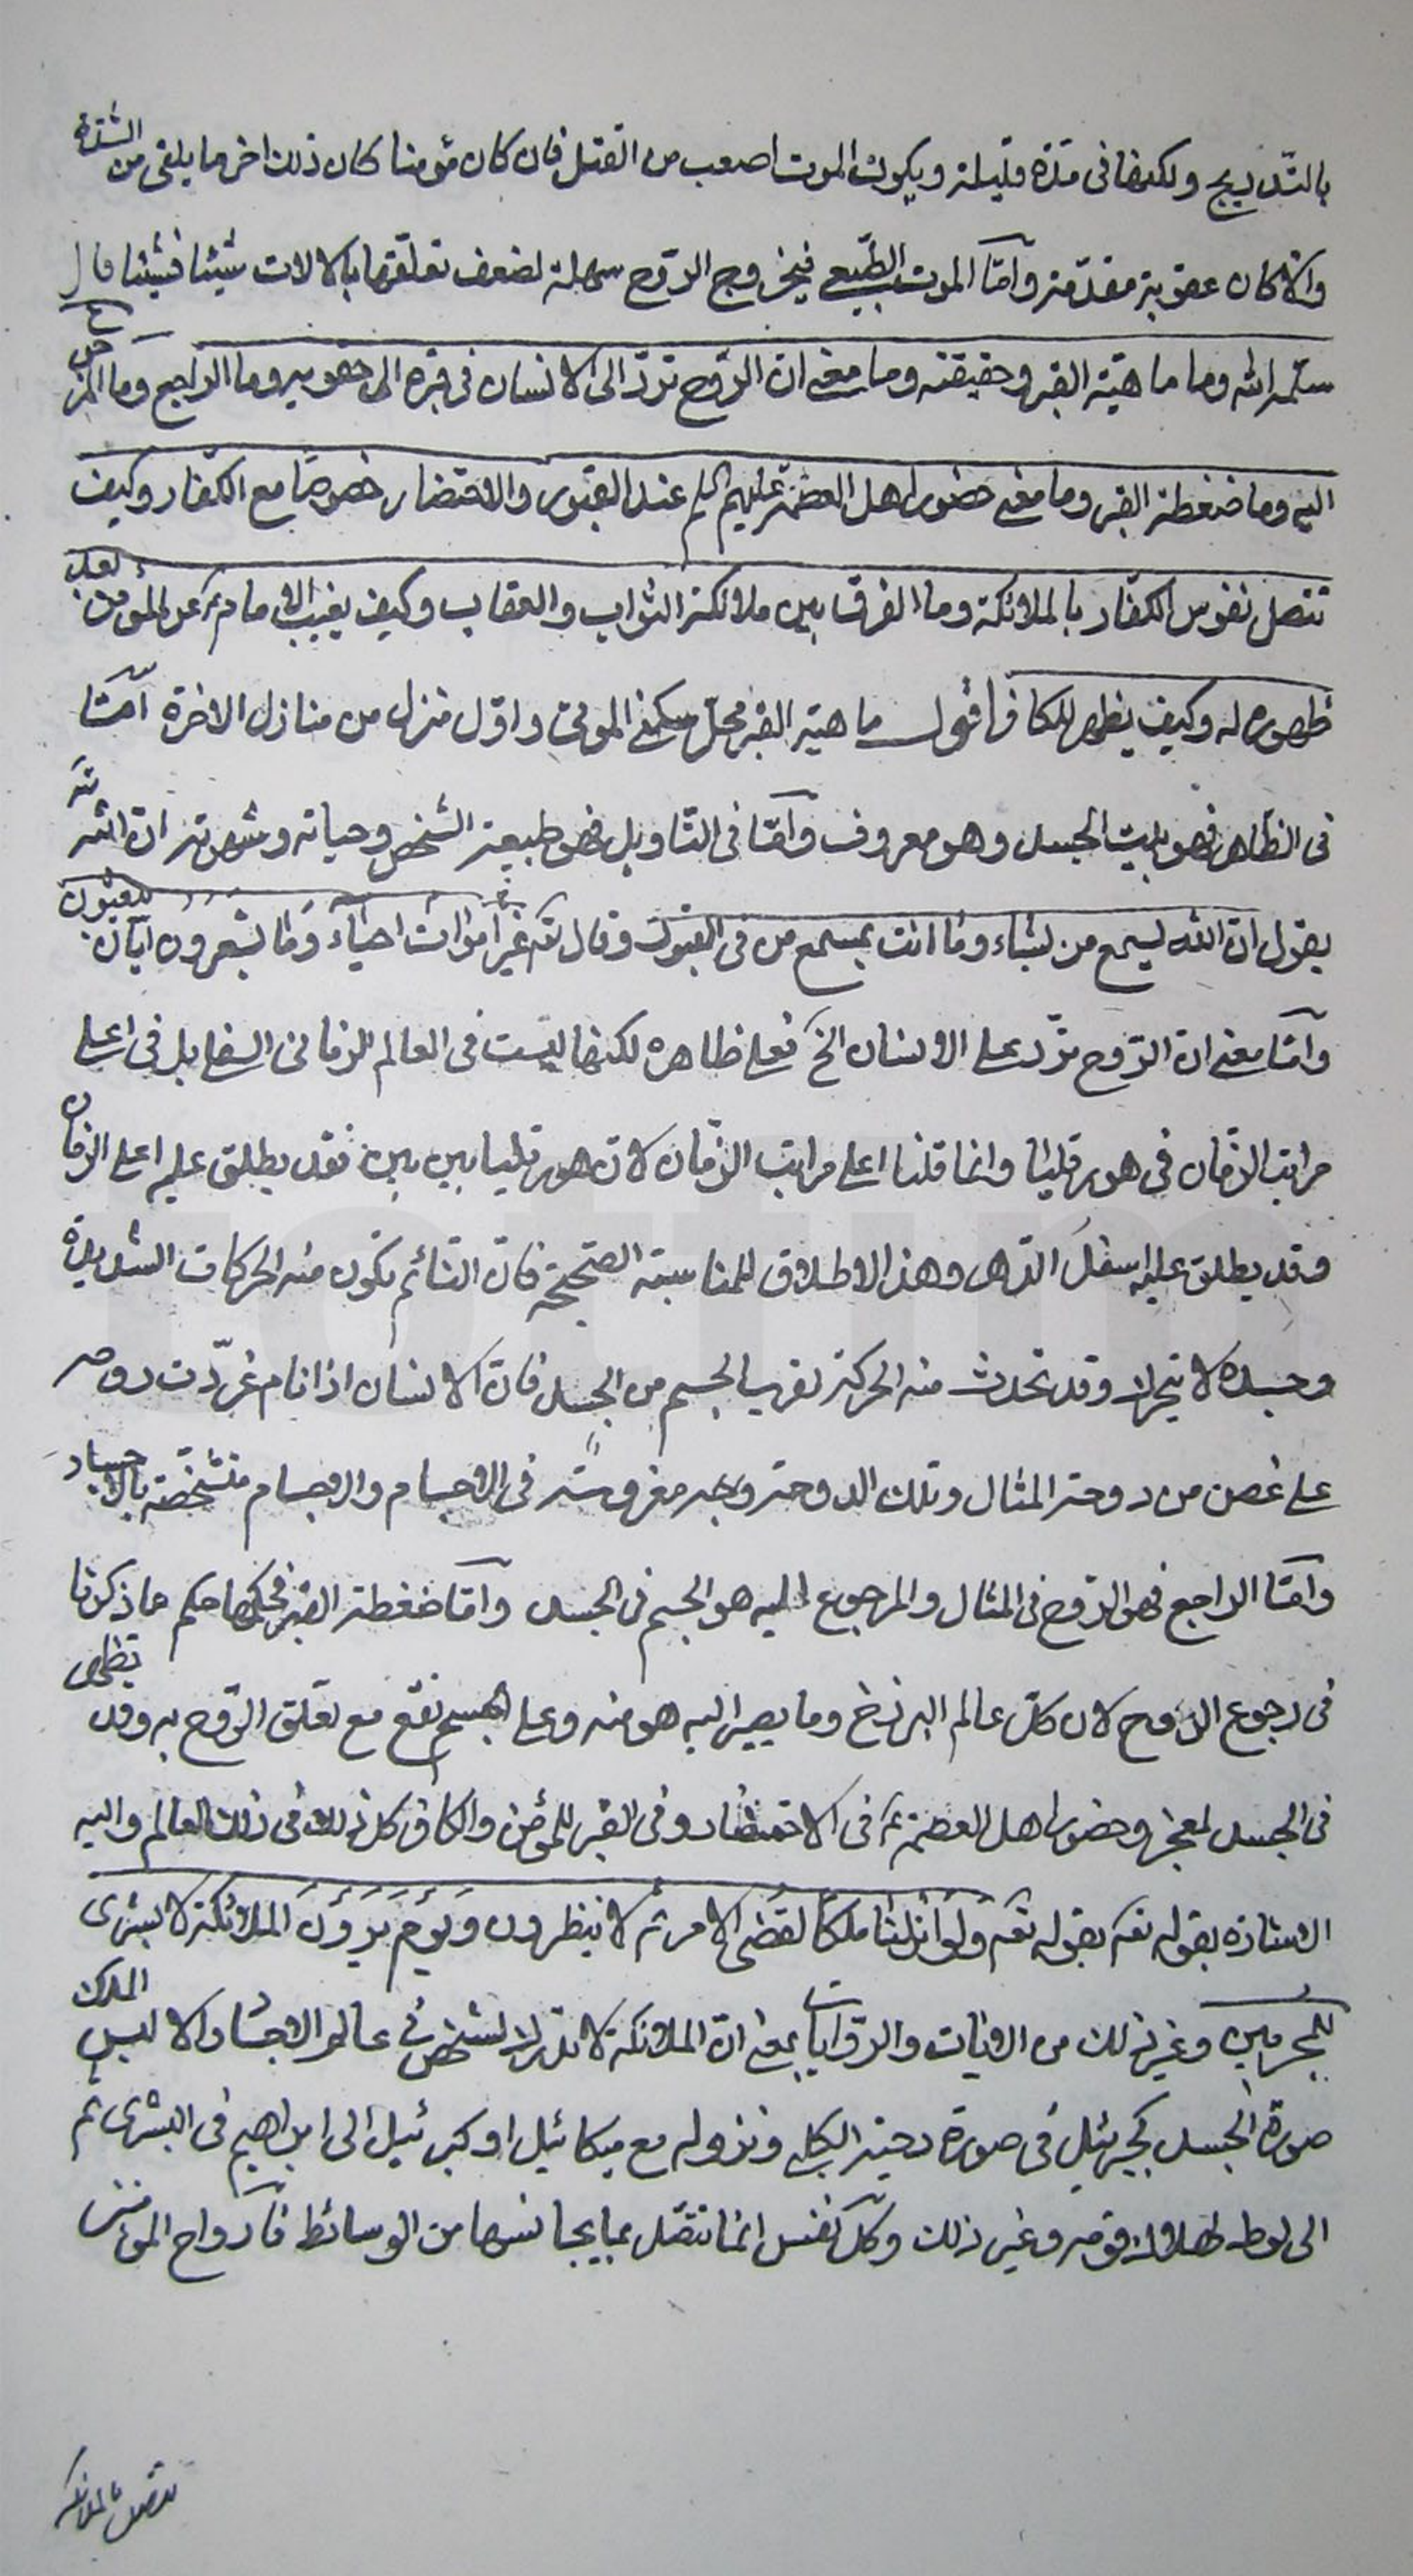 بالتدريج ولكنها فى مدّة قليلة ويكون الموت اصعب من القتل فان كان مؤمنا كان ذلك اخر ما يلقى من الشدّة
والّا كان عقوبة مقدّمة وامّا الموت الطّبيعى فيخروج الرّوح سهلة لضعف تعلّقها بالالات شيئا فشيئا قال
سلّمه الله وما ماهيّة القبر وحقيقته وما معنى ان الرّوح تردّ الى الانسان فى قبره الى حقويه وما الراجع وما المرجوع
اليه وما ضغطة القبر وما معنى حضور اهل العصمة عليهم السلم عند القبور والاحتضار خصوصًا مع الكفّار وكيف
تتصل نفوس الكفّار بالملائكة وما الفرق بين ملائكة الثواب والعقاب وكيف يغيب الامام ع عن المؤمن بعد
ظهوره له وكيف يظهر للكافر اقول ماهيّة القبر محلّ سكنى الموتى واوّل منزل من منازل الاخرة امّا
فى الظّاهر فهو بيت الجسد وهو معروف وامّا فى التّاويل فهو طبيعة الشخص وحياته وشهوته ان الله
يقول ان الله يسمع من يشاء وما انت بمسمع من فى القبور وقال تع غير اموات احياء وما يشعرون ايّان يبعثون
وامّا معنى ان الرّوح تردّ على الانسان الخ فعلى ظاهره لكنها ليست فى العالم الزمانى السفلى بل فى اعلى
مراتب الزمان فى هورقليا وانما قلنا اعلى مراتب الزّمان لان هورقليا بين بين فقد يطلق عليه اعلى الزمان
وقد يطلق عليه اسفل الدّهر وهذا الاطلاق للمناسبة الصحيحة فانّ النّائم تكون منه الحركات الشديدة
وجسده لا يتحرك وقد تحدث منه الحركة لقرب الجسم من الجسد فانّ الانسان اذا نام غرّدت روحه
على غصن من دوحة المثال وتلك الدوحة مغروسة فى الاجسام والاجسام متشخّصة بالاجساد
وامّا الراجع فهو الرّوح فى المثال والمرجوع اليه هو الجسم فى الجسد وامّا ضغطة القبر فحكمها حكم ما ذكرنا
فى رجوع الرّوح لان كلّ عالم البرزخ وما يصير اليه هو منه وعلى الجسم تقع مع تعلق الرّوح به وقد تظهر
فى الجسد لمعجز وحضور اهل العصمة ع فى الاحتضار وفى القبر للمؤمن والكافر كل ذلك فى ذلك العالم واليه
الاشارة بقوله تع بقوله تع ولو انزلنا ملكا لقضى الامر ثم لا ينظرون ويوم يرون الملائكة لا بشرى
للمجرمين وغير ذلك من الايات والرّوايات بمعنى انّ الملائكة لا تدرك لشخص فى عالم الاجساد الا لبس الملك
صورة الجسد كجبرئيل فى صورة دحية الكلبى ونزوله مع ميكائيل او كبرئيل الى ابراهيم فى البشرى ثم
الى لوط لهلاك قومه وغير ذلك وكل نفس انما تتصّل بما يجانسها من الوسائط فارواح المؤمنين
تتصل بالملائكة